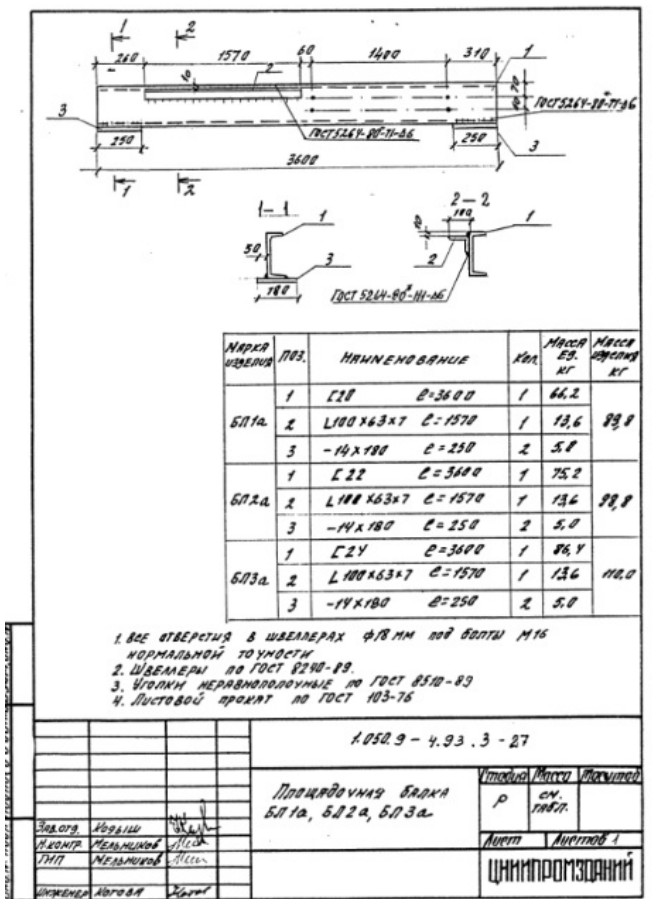 1 2
260 1570 60 1400 310 1
10 2 70
3 ГОСТ 5264-80*-Т1-Δ6
ГОСТ 5264-80-Т1-Δ6
250 250 3
3600
1 2
1-1 2-2
1 100 1
50 3 2
180 ГОСТ 5264-80*-Н1-Δ6
МАРКА ИЗДЕЛИЯ ПОЗ. НАИМЕНОВАНИЕ КОЛ. МАССА ЕД. КГ МАССА ИЗДЕЛИЯ КГ
БП1а 1 [20 ℓ=3600 1 66,2 89,8
2 L100x63x7 ℓ=1570 1 13,6
3 -14x180 ℓ=250 2 5,0
БП2а 1 [22 ℓ=3600 1 75,2 98,8
2 L100x63x7 ℓ=1570 1 13,6
3 -14x180 ℓ=250 2 5,0
БП3а 1 [24 ℓ=3600 1 86,4 110,0
2 L100x63x7 ℓ=1570 1 13,6
3 -14x180 ℓ=250 2 5,0
1. ВСЕ ОТВЕРСТИЯ В ШВЕЛЛЕРАХ ф18 ММ ПОД БОЛТЫ М16
НОРМАЛЬНОЙ ТОЧНОСТИ
2. ШВЕЛЛЕРЫ ПО ГОСТ 8240-89.
3. УГОЛКИ НЕРАВНОПОЛОЧНЫЕ ПО ГОСТ 8510-89
4. ЛИСТОВОЙ ПРОКАТ ПО ГОСТ 103-76
1.050.9-4.93.3-27
ПЛОЩАДОЧНАЯ БАЛКА
БП1а, БП2а, БП3а
Стадия Масса Масштаб
Р СМ. ТАБЛ.
Лист Листов 1
ЗАВ.ОТД. КОДЫШ
Н.КОНТР. МЕЛЬНИКОВ
ГИП МЕЛЬНИКОВ
ИНЖЕНЕР КОТОВА
ЦНИИПРОМЗДАНИЙ